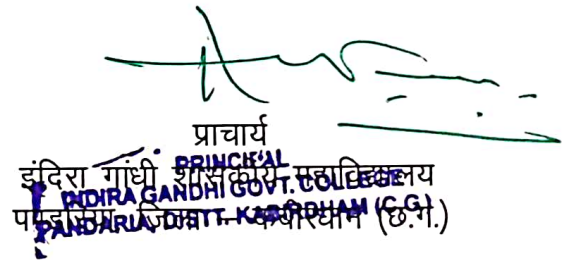 प्राचार्य
इंदिरा गांधी शासकीय महाविद्यालय
पण्डरिया, जिला – कबीरधाम (छ.ग.)
PRINCIPAL
INDIRA GANDHI GOVT. COLLEGE
PANDARIA, DISTT.-KABIRDHAM (C.G.)